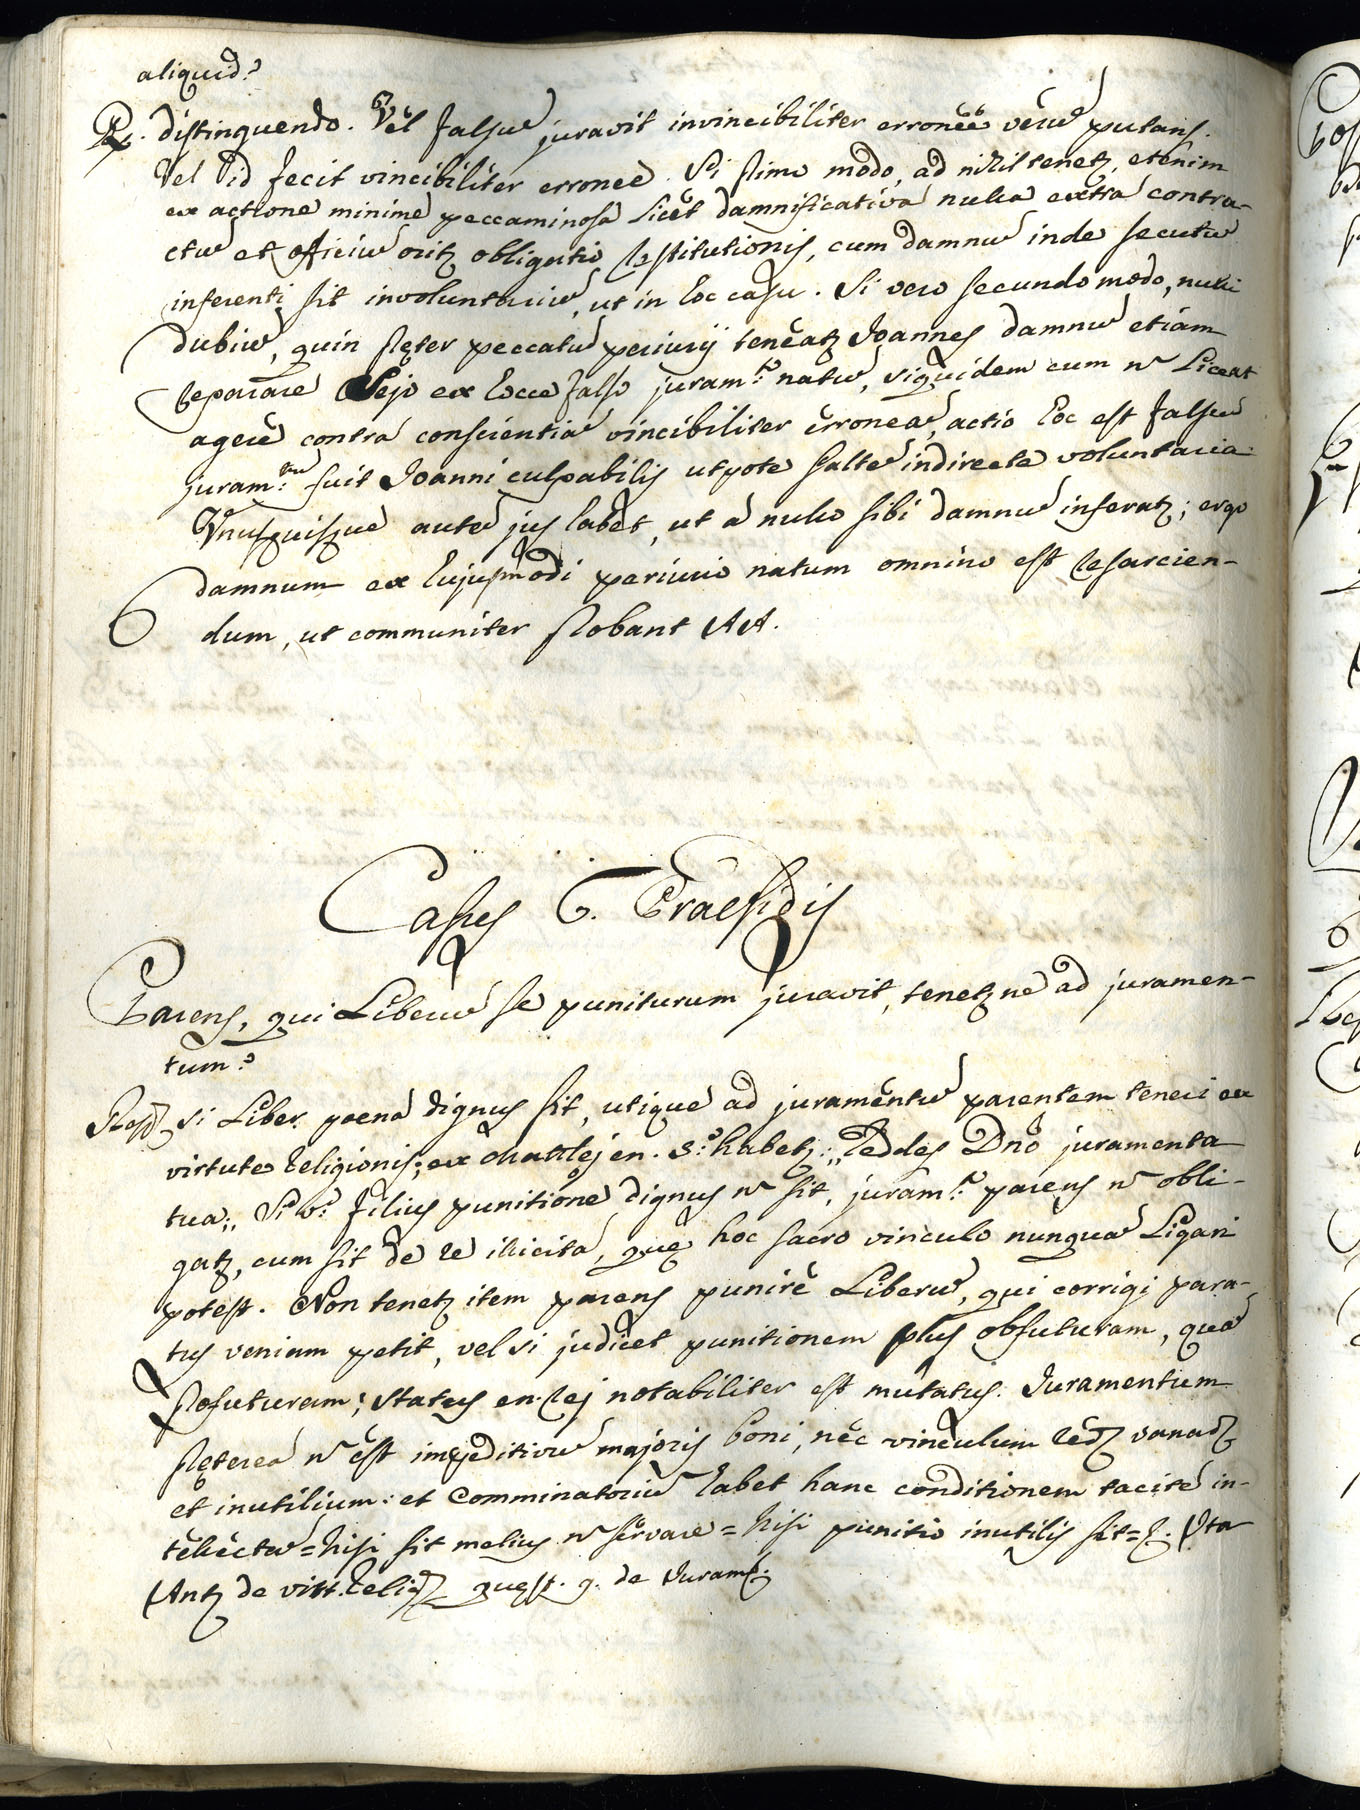 aliquid?
R. distinguendo. Vel falsu juravit invincibiliter erroneè verũ putans.
Vel id fecit vincibiliter erronee. Si primo modo, ad nihil tenet, etenim
ex actione minime peccaminosa licet damnificativa nulla extra contra-
ctũ et officiũ orit obligatio restitutionis, cum damnũ inde secutũ
inferenti sit involuntariũ, ut in hoc casu. Si vero secundo modo, nulli
dubiũ, quin præter peccatũ periurij teneat Joannes damnũ etiam
reparare Sejo ex hocce falso juram:to natũ, siquidem cum ñ liceat
agere contra conscientiã vincibiliter erroneã, actio hoc est falsũ
juram:tum fuit Joanni culpabilis utpote saltẽ indirecte voluntaria.
Unusquisque autẽ jus habet, ut a nullo sibi damnũ inferat; ergo
damnum ex hujusmodi periurio natum omnino est resarcien-
dum, ut communiter probant AA.
Casus 6. Praesidis
Parens, qui Liberũ se puniturum juravit, tenet ne ad juramen-
tum?
Resp. si Liber poena dignus sit, utique ad juramentũ parentem teneri ex
virtute religionis; ex Matthej en. 5:o habet: „reddes Dño juramenta
tua„ Si v:o filius punitione dignus ñ sit, juram:to parens ñ obli-
gat, cum sit de re illicita, quę hoc sacro vinculo nunquã ligari
potest. Non tenet item parens punire Liberũ, qui corrigi para-
tus veniam petit, vel si judicet punitionem plus obfuturam, quã
profuturam; status en. rej notabiliter est mutatus. Juramentum
pręterea ñ est impeditivũ majoris boni, nec vinculum rerũ vanarũ
et inutilium: et Comminatoriũ habet hanc conditionem tacite in-
tellectã = nisi sit melius ñ servare = nisi punitio inutilis sit = &. Ita
Ant. de virt. relig. quęst. 9. de Juram:to